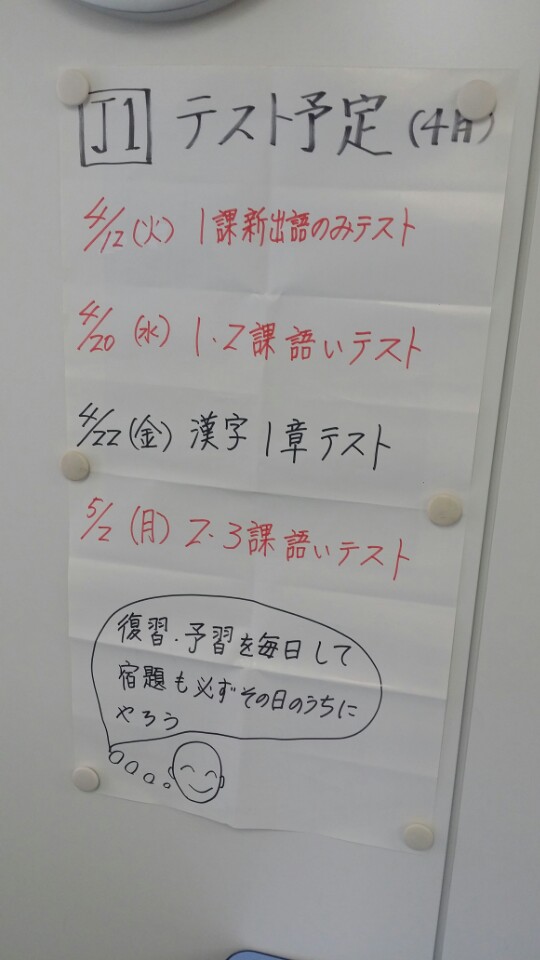 J1 テスト予定(4月)
4/12(火) 1課新出語のみテスト
4/20(水) 1・2課語いテスト
4/22(金) 漢字1章テスト
5/2(月) 2・3課語いテスト
復習・予習を毎日して
宿題も必ずその日のうちに
やろう